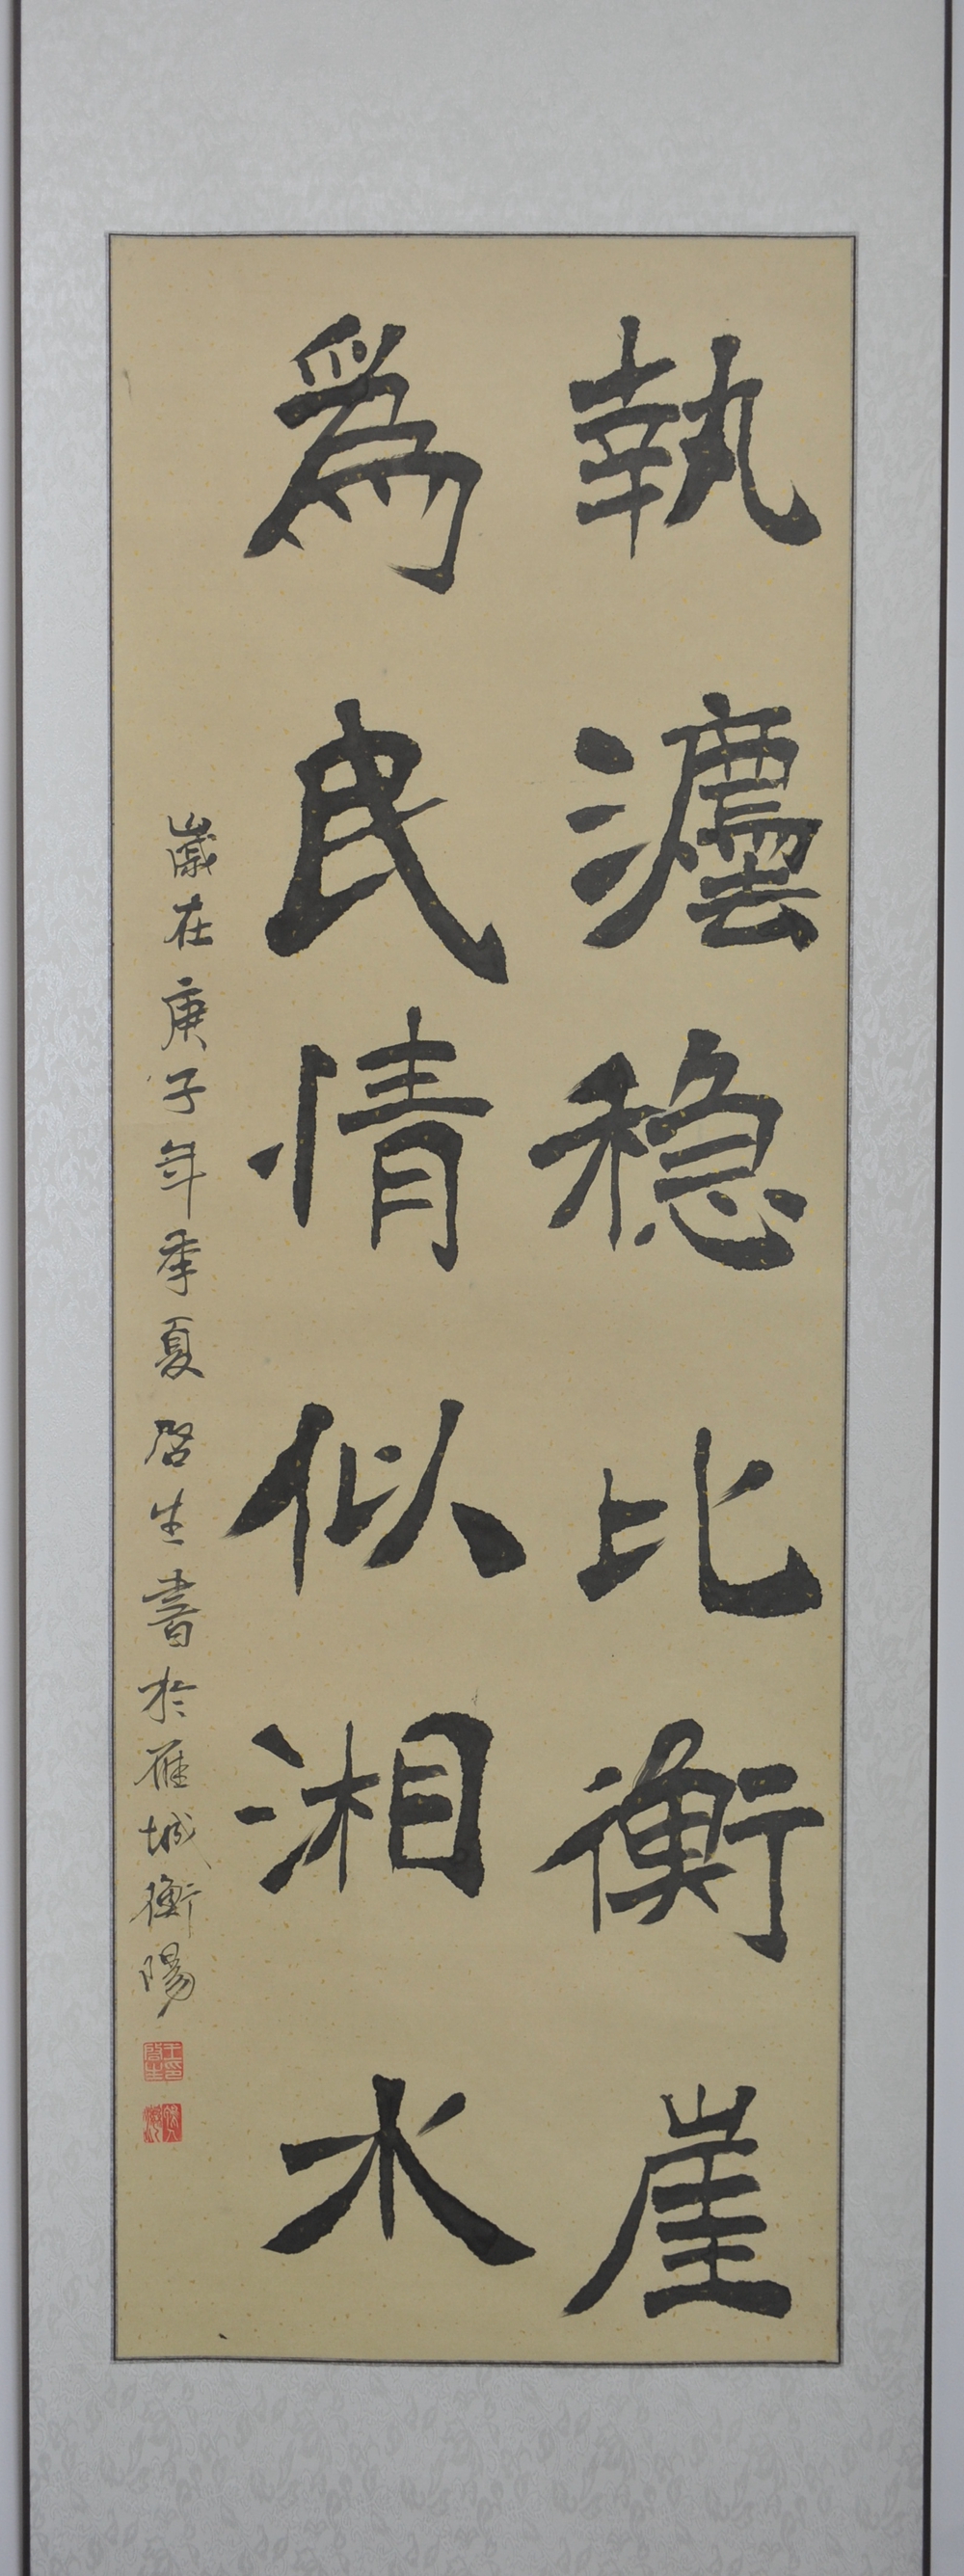 執灋稳比衡崖
爲民情似湘水
歲在庚子年季夏啓生書於雁城衡陽